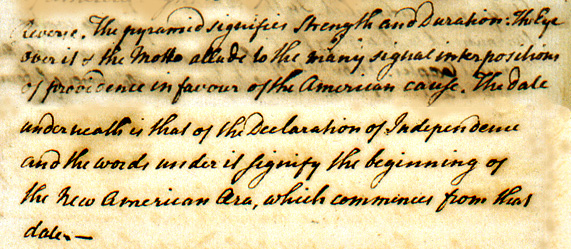 Reverse. The pyramid signifies Strength and Duration: The Eye
over it & the Motto allude to the many signal interpositions
of providence in favour of the American cause. The date
underneath is that of the Declaration of Independence
and the words under it signify the beginning of
the New American Æra, which commences from that
date.—